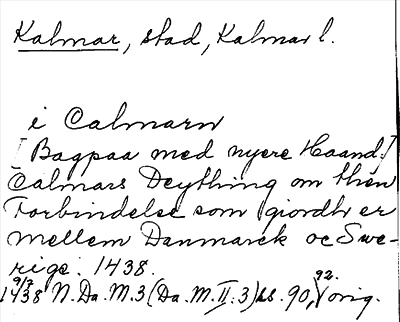 Kalmar, stad, Kalmar l.
i Calmarn
[Bagpaa med nyere Haand:]
Calmars Deything om then
Forbindelse som giordt er
mellem Danmarck oc Swe-
rige: 1438.
9/7 92.
1438 N.Da.M.3 (Da.M.II.3) ss. 90, orig.